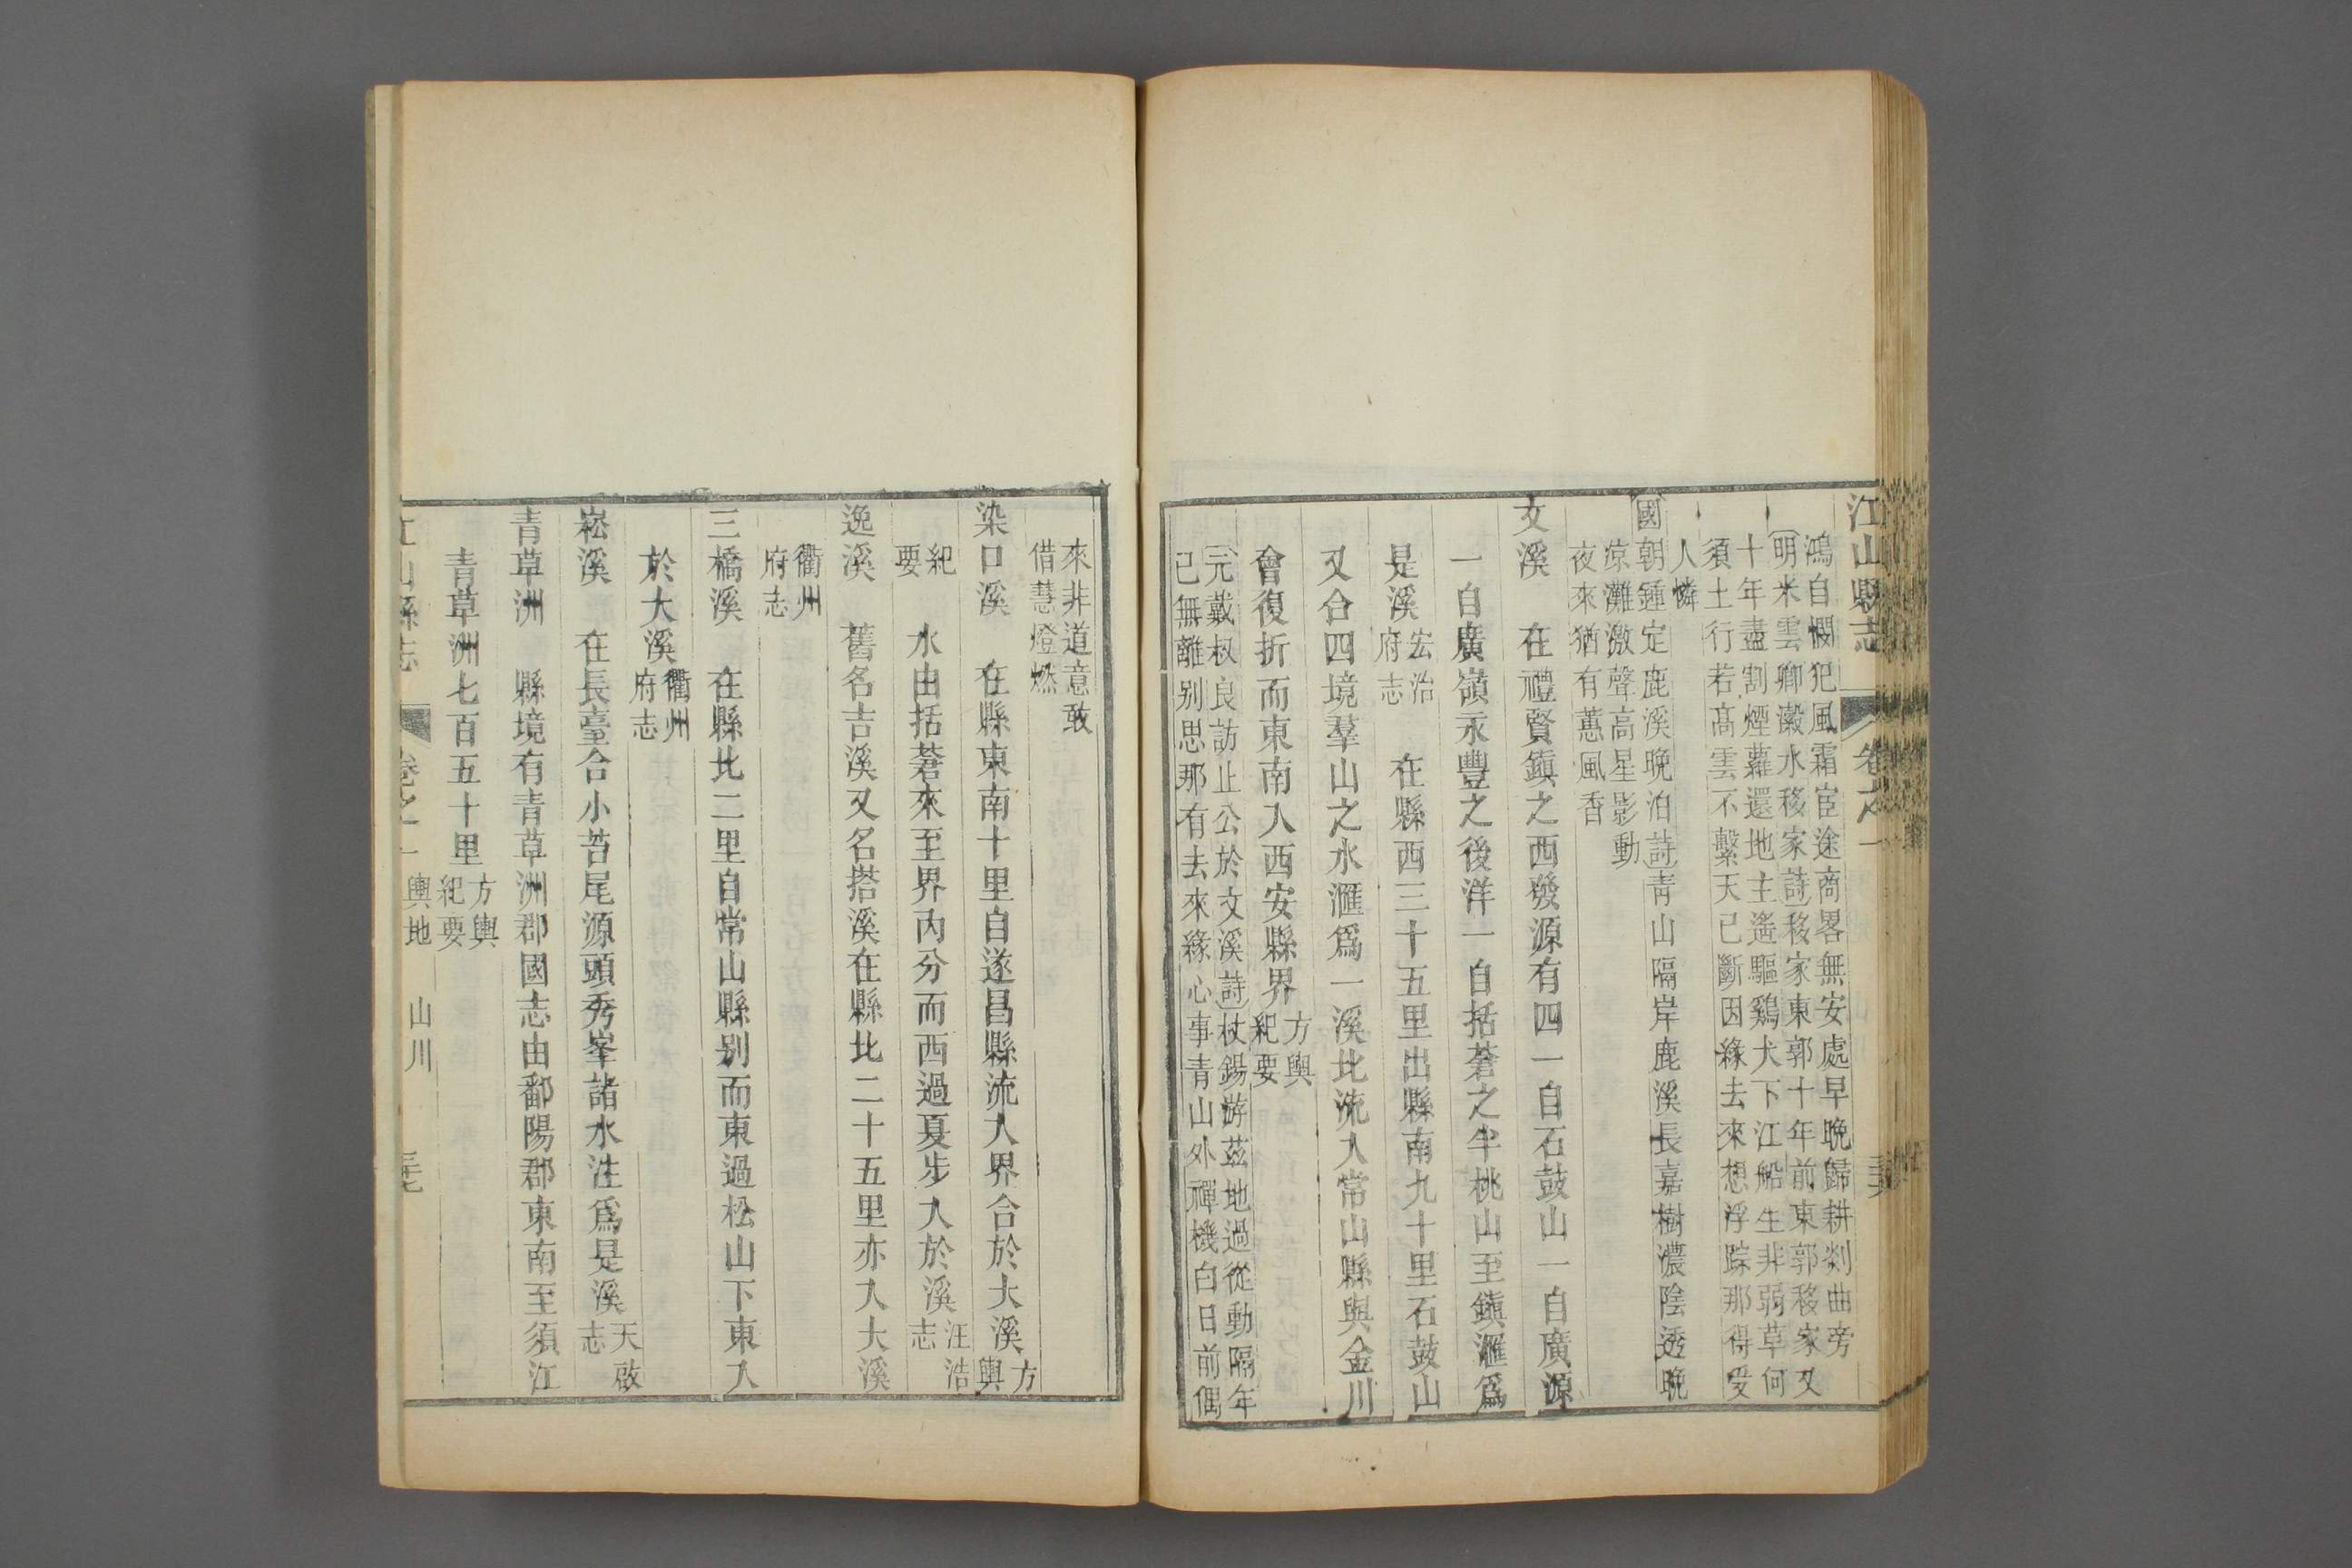 江山縣志 卷之一
鴻自憫犯風霜宦途商畧無安處早晚歸耕剡曲旁
明米雲卿瀫水移家詩移家東郭十年前東郭移家又
十年盡割煙蘿還地主遙驅鷄犬下江船生非弱草何
須土行若髙雲不繫天已斷因緣去來想浮踪那得受
人憐
國朝鍾定鹿溪晚泊詩青山隔岸鹿溪長嘉樹濃陰透晚
凉灘激聲高星影動
夜來猶有蕙風香
文溪 在禮賢鎮之西發源有四一自石鼓山一自廣源
一自廣嶺永豐之後洋一自括蒼之半桃山至鎮滙爲
是溪宏治
府志 在縣西三十五里出縣南九十里石鼓山
又合四境羣山之水滙爲一溪北流入常山縣與金川
會復折而東南入西安縣界方輿
紀要
元戴叔良訪止公於文溪詩杖錫游茲地過從動隔年
已無離别思那有去來緣心事青山外禪機白日前偶
來非道意敢
借慧燈燃
染口溪 在縣東南十里自遂昌縣流入界合於大溪方
輿
紀
要 水由括蒼來至界內分而西過夏步入於溪汪浩
志
逸溪 舊名吉溪又名搭溪在縣北二十五里亦入大溪
衢州
府志
三橋溪 在縣北二里自常山縣别而東過松山下東入
於大溪衢州
府志
崧溪 在長臺合小苔尾源頭秀峯諸水注爲是溪天啟
志
青草洲 縣境有青草洲郡國志由鄱陽郡東南至須江
青草洲七百五十里方輿
紀要
江山縣志 卷之一 輿地 山川 三七